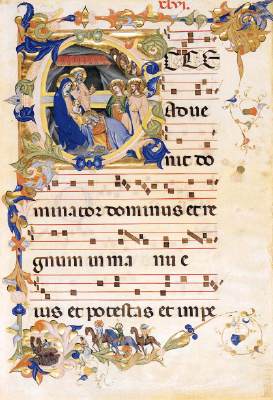 xlvi.
ECCE
adue
nit do
minator dominus et re
gnum in ma nu e
ius et potestas et impe